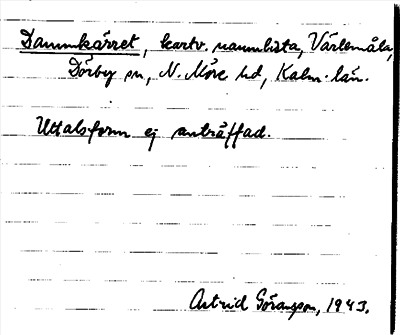 Dammkärret, kartv. namnlista, Värlemåla,
Dörby sn, N. Möre hd, Kalm. län.
Uttalsform ej anträffad.
Astrid Göransson, 1943.